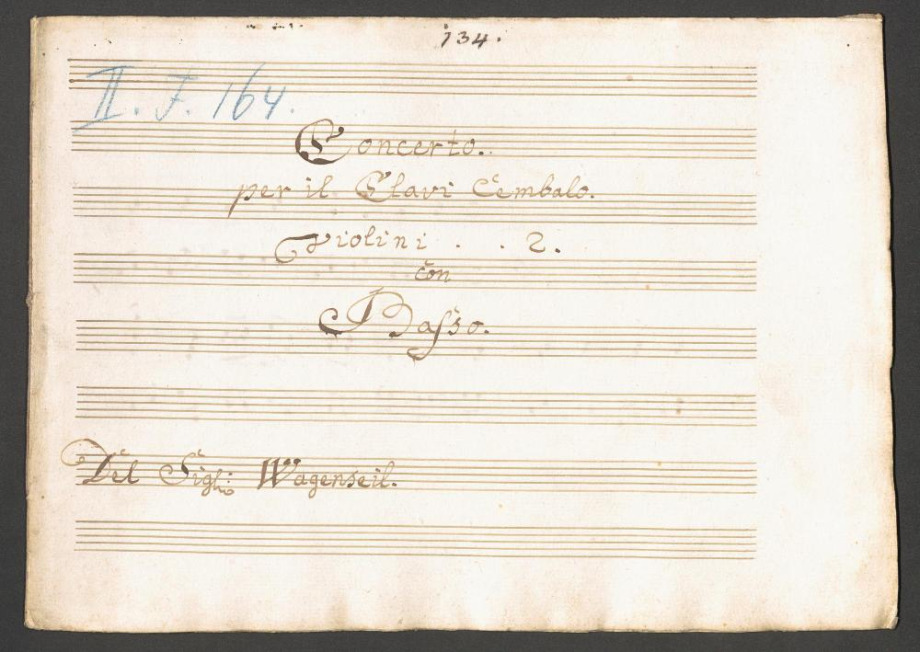 134.
II. F. 164.
Concerto.
per il Clavi Cembalo.
Violini . . 2.
con
Basso.
Del Sigℓ: Wagenseil.